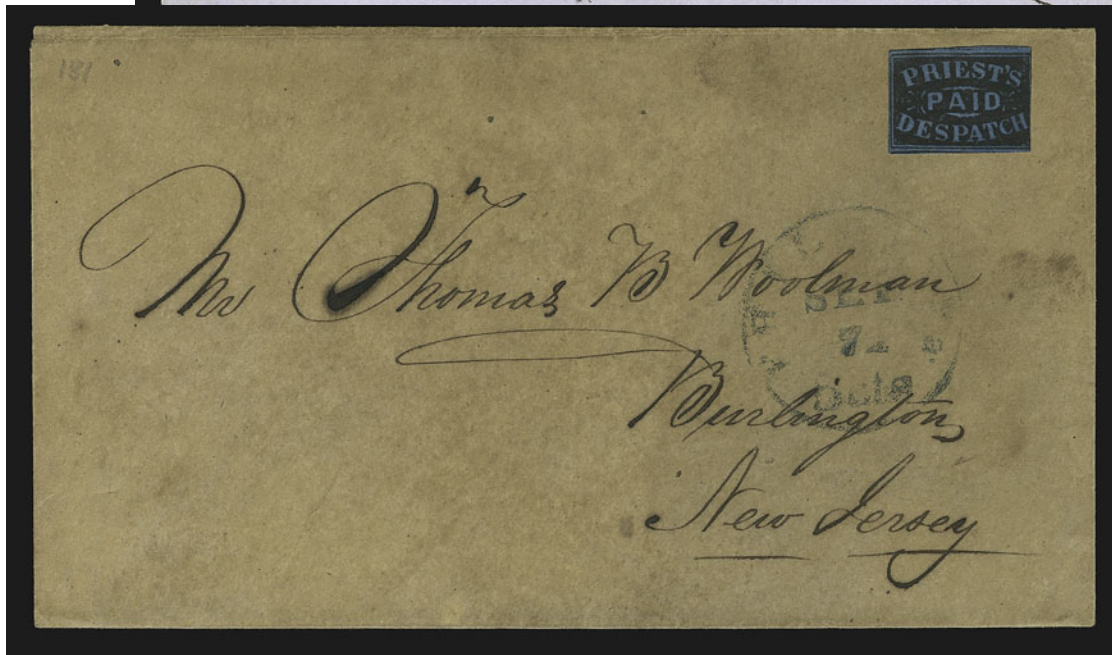 181
PRIEST'S
PAID
DESPATCH
Mr Thomas B Woolman
SEP
Burlington
New Jersey